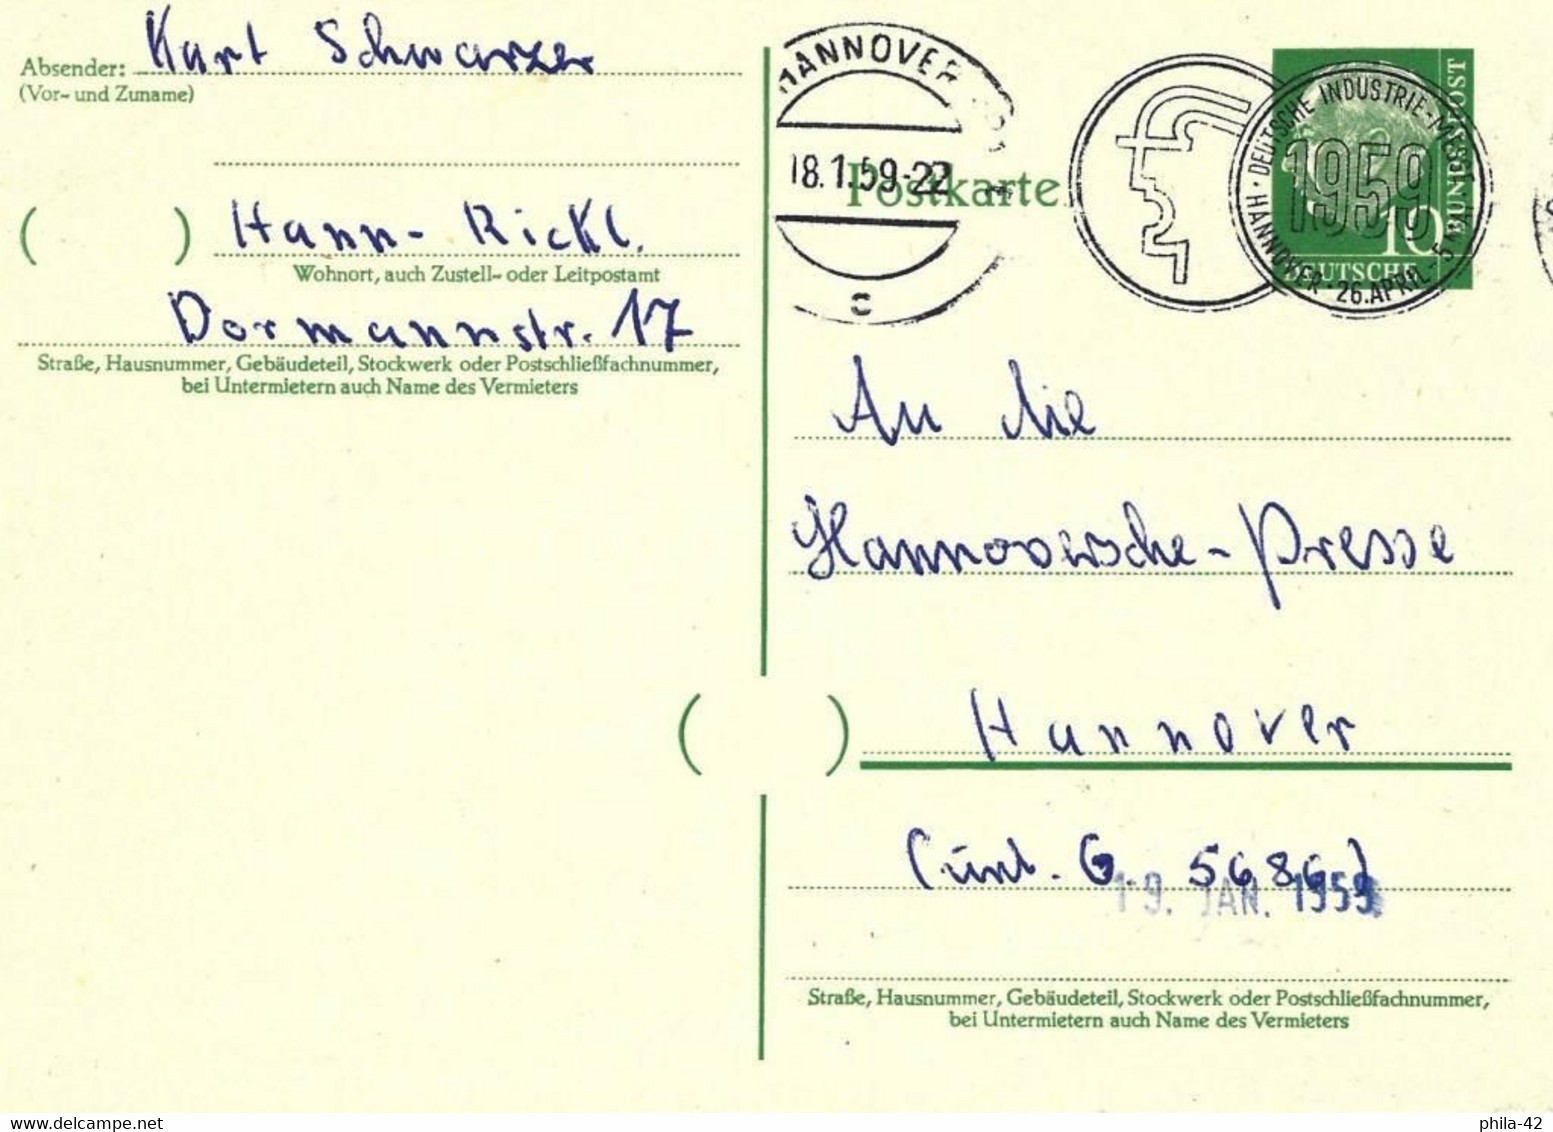 Absender: Kurt Schwarzer
(Vor- und Zuname)
( ) Hann- Rickl.
Wohnort, auch Zustell- oder Leitpostamt
Dormannstr. 17
Straße, Hausnummer, Gebäudeteil, Stockwerk oder Postschließfachnummer,
bei Untermietern auch Name des Vermieters
HANNOVER
18.1.59-22
c
Postkarte
DEUTSCHE INDUSTRIE-MESSE
1959
HANNOVER · 26. APRIL - 5.
10
DEUTSCHE
BUNDESPOST
An die
Hannoversche-Presse
( ) Hannover
(unt. G. 5686)
19. JAN. 1959
Straße, Hausnummer, Gebäudeteil, Stockwerk oder Postschließfachnummer,
bei Untermietern auch Name des Vermieters
delcampe.net
phila-42